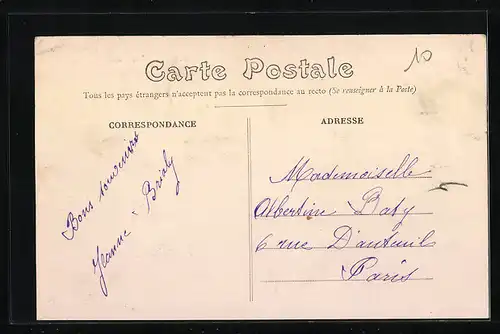 10
Carte Postale
Tous les pays étrangers n'acceptent pas la correspondance au recto (Se renseigner à la Poste)
CORRESPONDANCE
Bons souvenirs
Jeanne
ADRESSE
Mademoiselle
Albertine Baty
6 rue D'auteuil
Paris